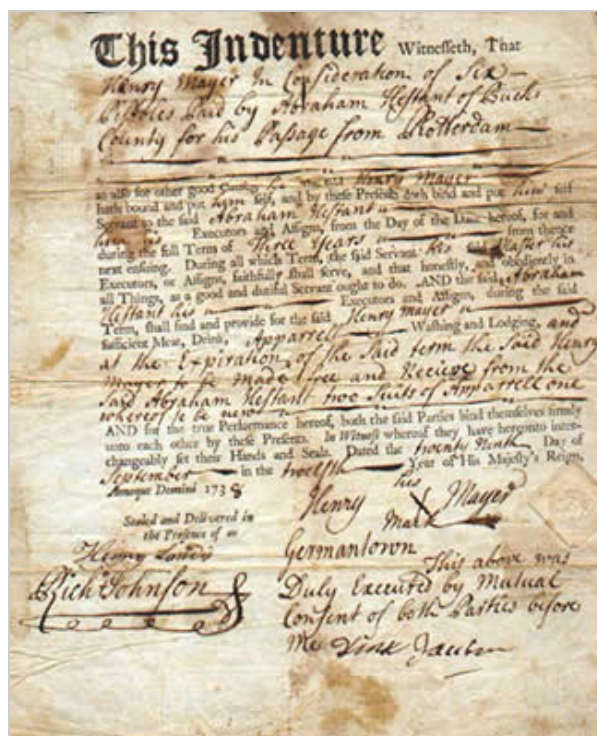 This Indenture Witnesseth, That
Henry Mayer In Consideration of Six
Pistoles Paid by Abraham Hestant of Bucks
County for his Passage from Rotterdam
as also for other good Causes he the said Henry Mayer
hath bound and put him self, and by these Presents doth bind and put him self
Servant to the said Abraham Hestant
his Executors and Assigns, from the Day of the Date hereof, for and
during the full Term of Three Years from thence
next ensuing. During all which Term, the said Servant his said Master his
Executors, or Assigns, faithfully shall serve, and that honestly, and obediently in
all Things, as a good and dutiful Servant ought to do. AND the said, Abraham
Hestant his Executors and Assigns, during the said
Term, shall find and provide for the said Henry mayer
sufficient Meat, Drink, Apparrell Washing and Lodging, and
at the Expiration of the Said term the Said Henry
Mayer to be made free and Recieve from the
Said Abraham Hestant two Suits of Apparrell one
whereof to be new
AND for the true Performance hereof, both the said Parties bind themselves firmly
unto each other by these Presents. In Witness whereof they have hereunto inter-
changeably set their Hands and Seals. Dated the twenty Ninth Day of
September in the twelfth Year of His Majesty's Reign,
Annoque Domini 1738
his
Henry X Mayer
mark
Sealed and Delivered in
the Presence of us
Henry
Rich Johnson
Germantown
This above was
Duly Executed by Mutual
Consent of both Parties before
Me